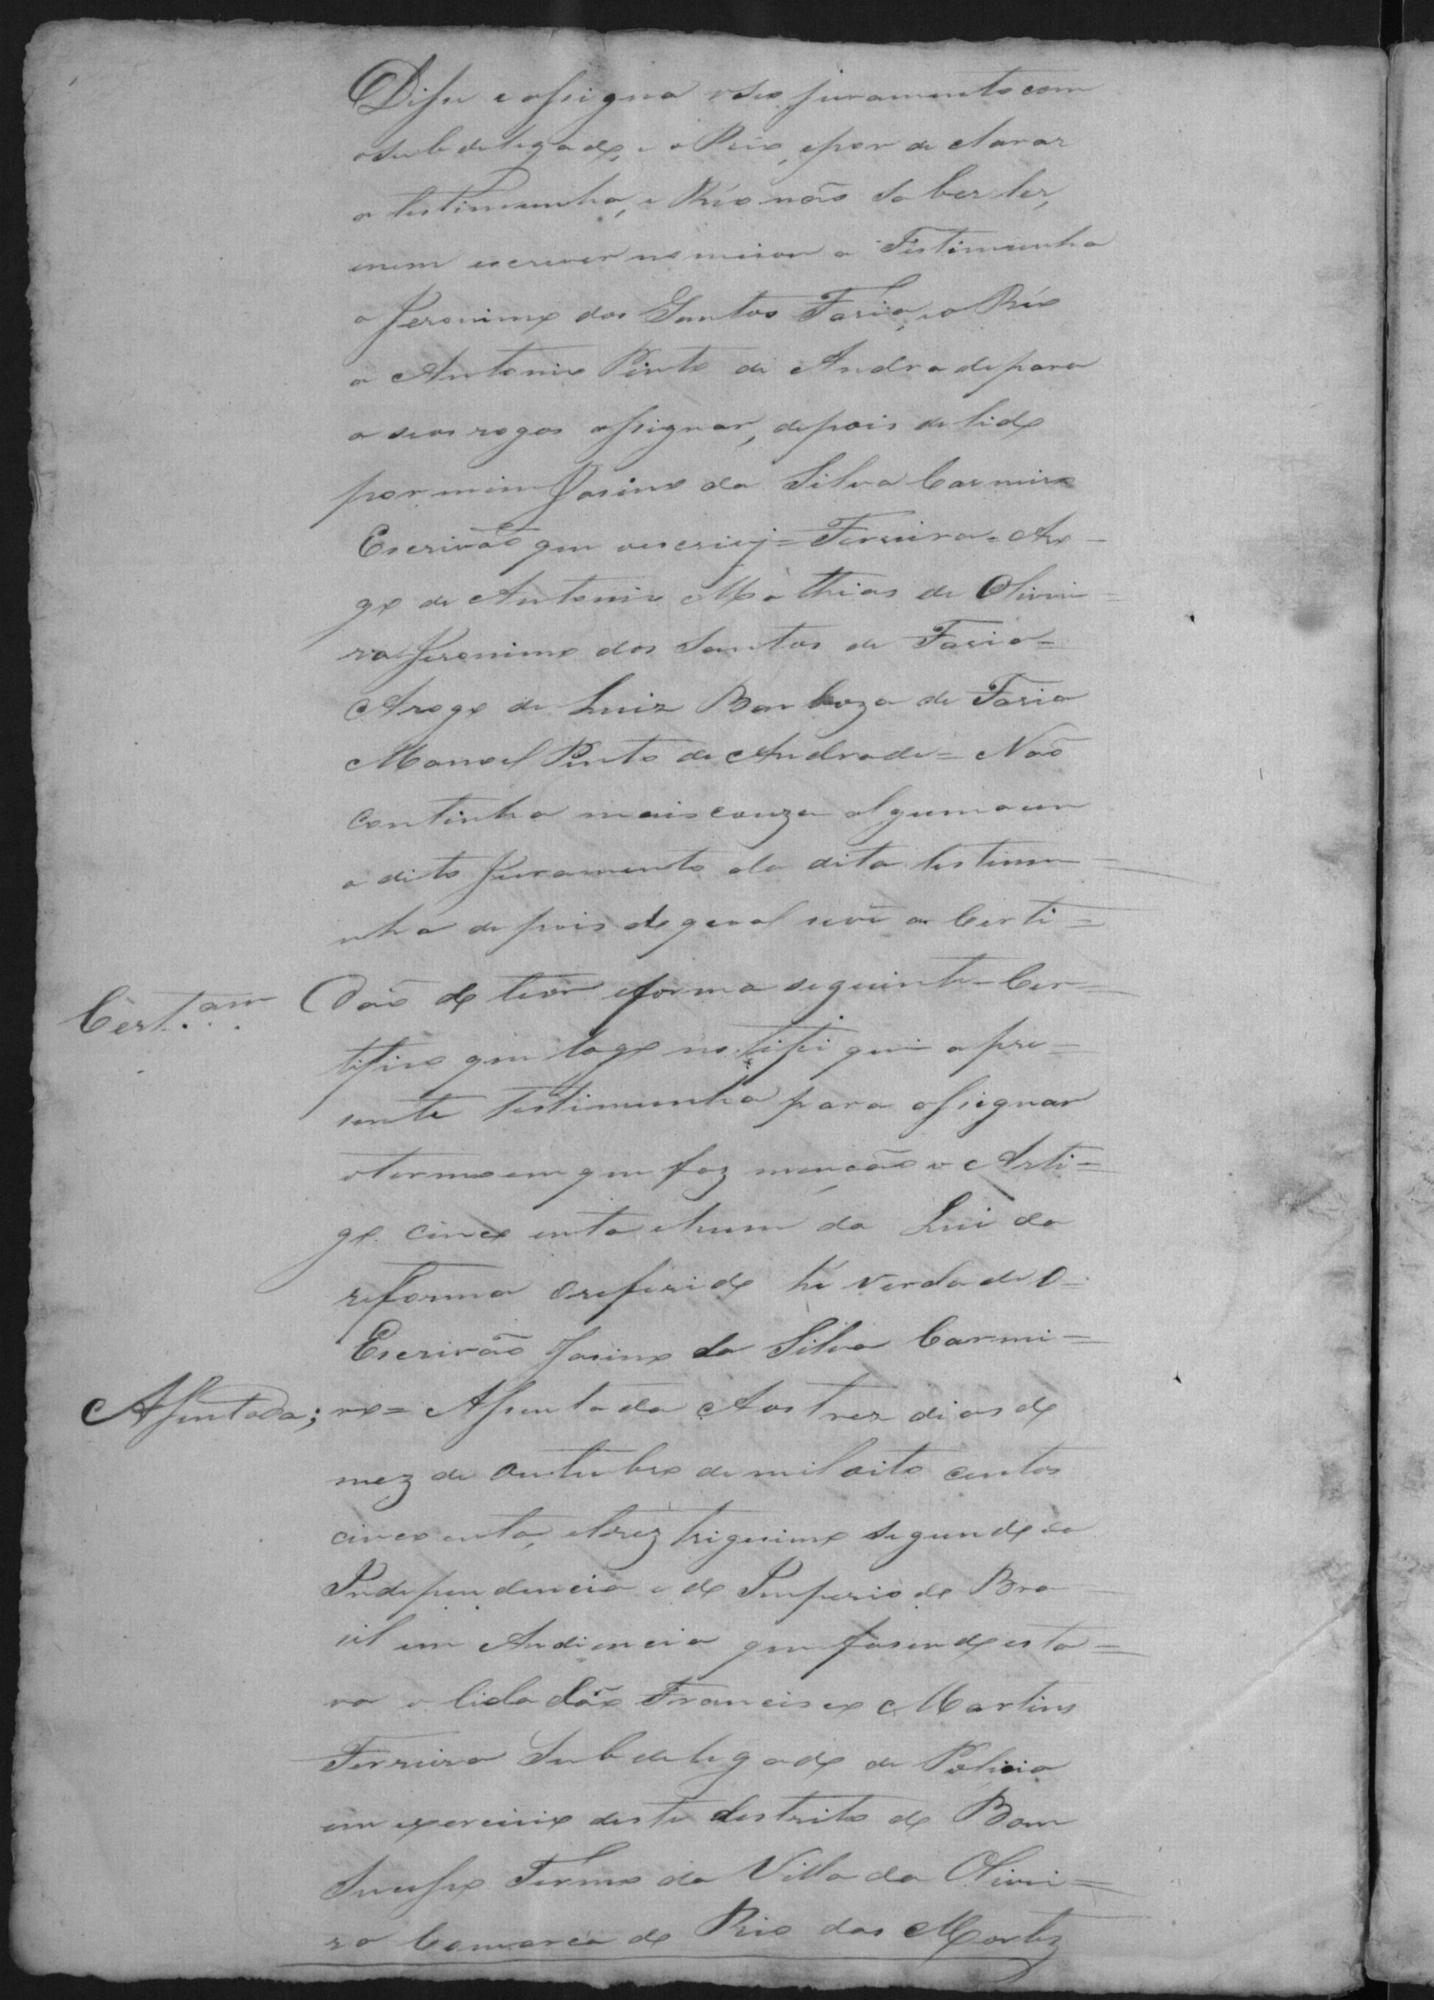 Disse e assigna o seo juramento com
o Subdelegado, e o Reio, e por declarar
a testimunha, e Réo não saber ler,
nem escrever nomeiou a Testimunha
a Jeronimo dos Santos Faria, e o Réo
a Antonio Pinto de Andrade para
a seos rogos assignar, depois de lido
por mim Josino da Silva Carmiro
Escrivão que o escrivij = Ferreira = Aro-
go de Antonio Mathias de Olivei=
ra Jeronimo dos Santos de Faria =
Arogo de Luiz Barboza de Faria
Manoel Pinto de Andrade = Não
continha mais couza alguma em
o dito Juramento da dita testemu=
nha depois do qual seve a Certi=
Cert.am
dão do teor e forma seguinte = Cer=
tifico que logo notifi quei a pre=
sente testimunha para assignar
o termo em que faz menção o Arti=
go cincoenta e hum da Lei da
reforma o referido he verdade O
Escrivão Josino da Silva Carmi=
Assentada;
ro = Assentada Aos trez dias do
mez de Outubro de mil oito centos
cincoenta, e trez trigesimo segundo da
Independencia e do Imperio do Bra
sil em Audiencia que fasendo esta=
va o Cidadão Francisco Martins
Ferreira Subdelegado de Policia
em exercicio deste destrito do Bom
Sucesso Termo da Villa da Olivei=
ra Comarca do Rio das Mortes